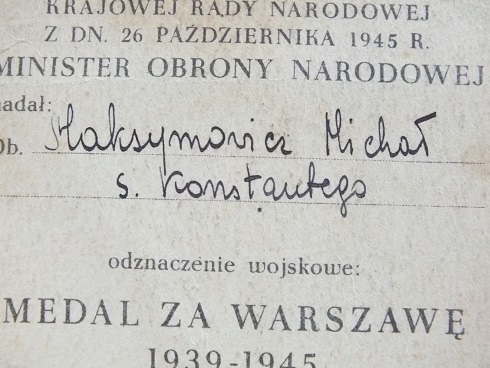 KRAJOWEJ RADY NARODOWEJ
Z DN. 26 PAŹDZIERNIKA 1945 R.
MINISTER OBRONY NARODOWEJ
nadał:
Ob. Maksymowicz Michał
s. Konstantego
odznaczenie wojskowe:
MEDAL ZA WARSZAWĘ
1939-1945